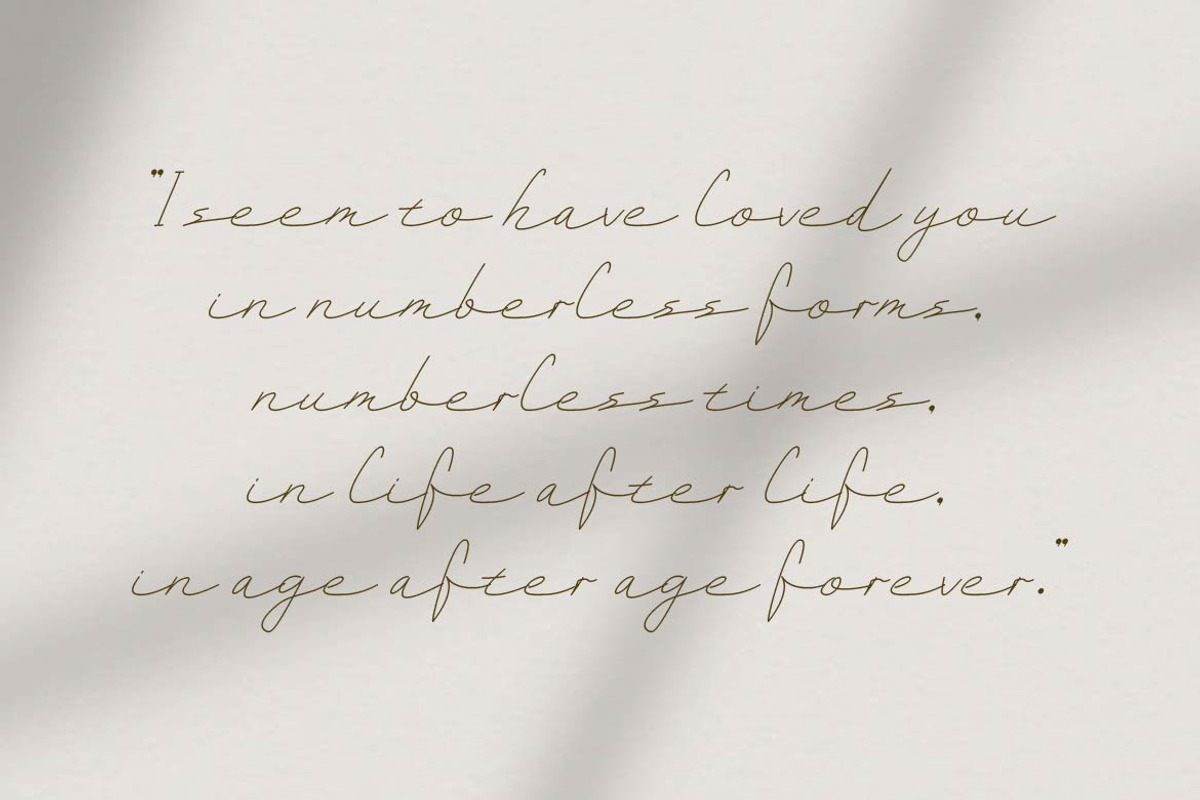 "I seem to have loved you
in numberless forms.
numberless times,
in life after life,
in age after age forever."